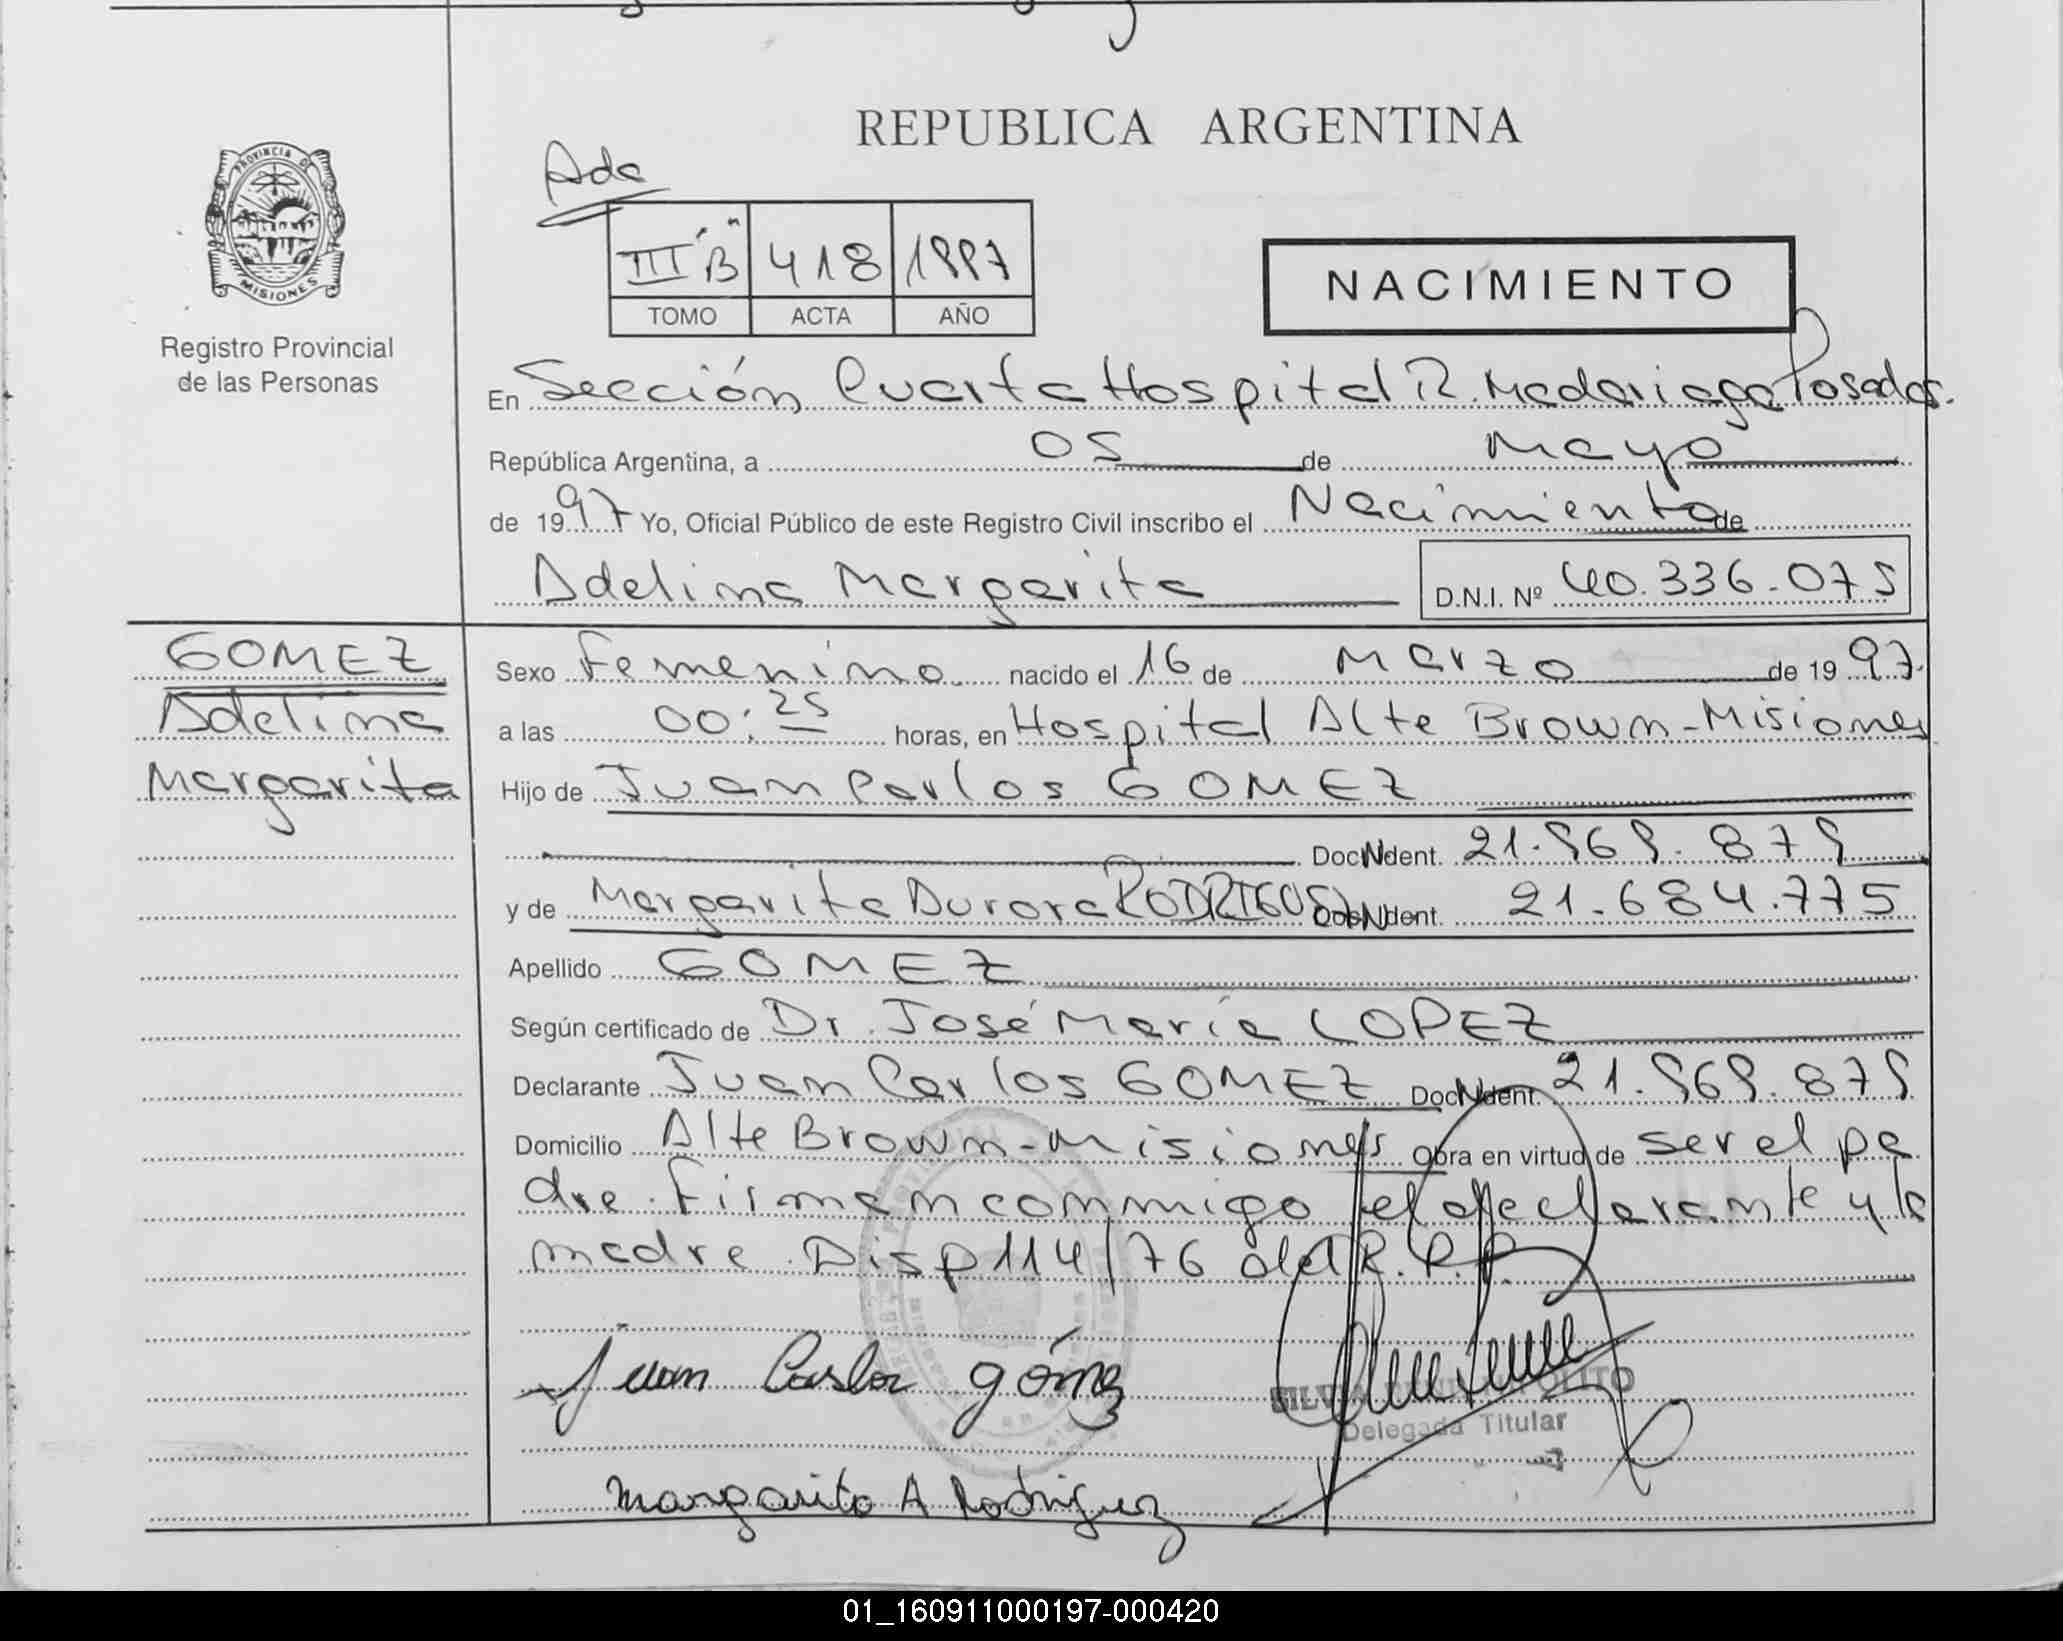 REPUBLICA ARGENTINA
PROVINCIA DE
MISIONES
Registro Provincial
de las Personas
Ada
III "B" 418 1997
TOMO ACTA AÑO
NACIMIENTO
En Sección Cuarta Hospital R. Madariaga Posadas.
República Argentina, a 05 de Mayo
de 1997 Yo, Oficial Público de este Registro Civil inscribo el Nacimiento de
Adelina Margarita D.N.I. Nº 40.336.075
GOMEZ
Adelina
Margarita
Sexo Femenino nacido el 16 de Marzo de 1997.
a las 00:25 horas, en Hospital Alte Brown-Misiones
Hijo de Juan Carlos GOMEZ
Doc Ident. 21.969.879
y de Margarita Aurora RODRIGUEZ Doc Ident. 21.684.775
Apellido GOMEZ
Según certificado de Dr. José María LOPEZ
Declarante Juan Carlos GOMEZ Doc Ident. 21.969.879
Domicilio Alte Brown-Misiones Obra en virtud de ser el pa
dre. Firman conmigo el declarante y la
madre. Disp 114/76 del R.P.P.
Juan Carlos gómez
Delegada Titular
Margarita A Rodriguez
01_160911000197-000420